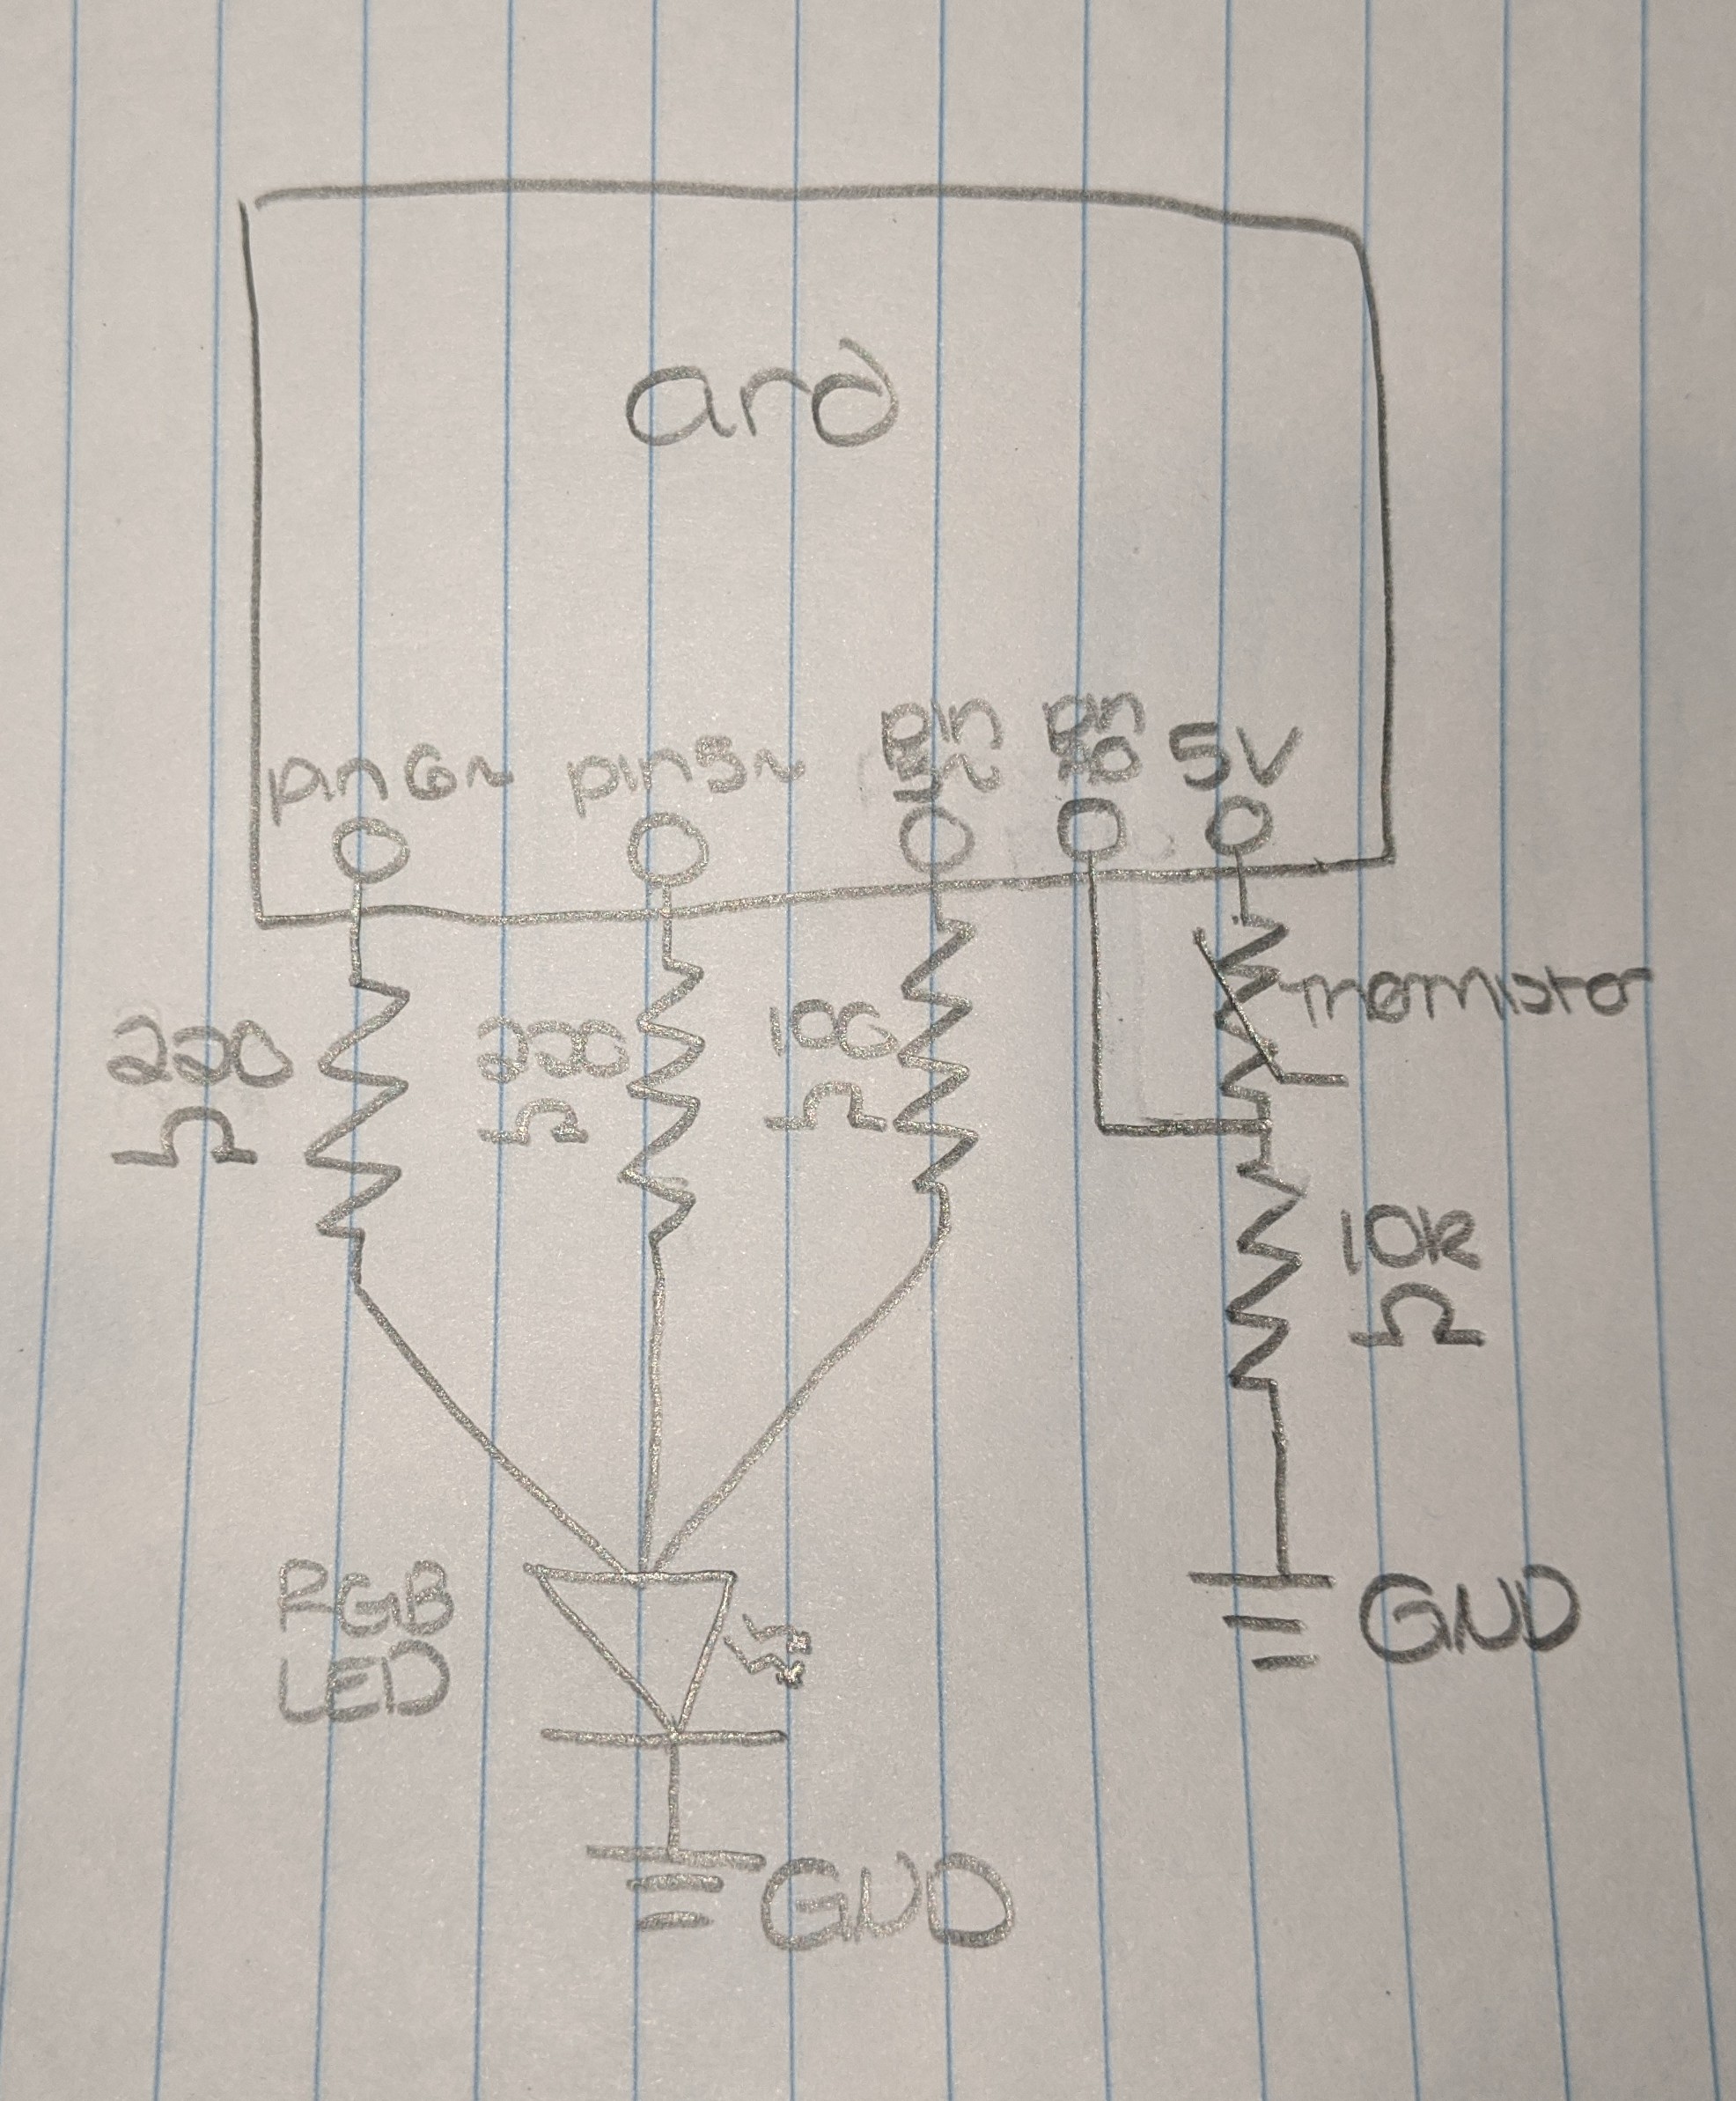 ard
pin6~
pin5~
pin
pin
5V
220
Ω
220
Ω
100
Ω
Thermistor
10k
Ω
RGB
LED
GND
GND